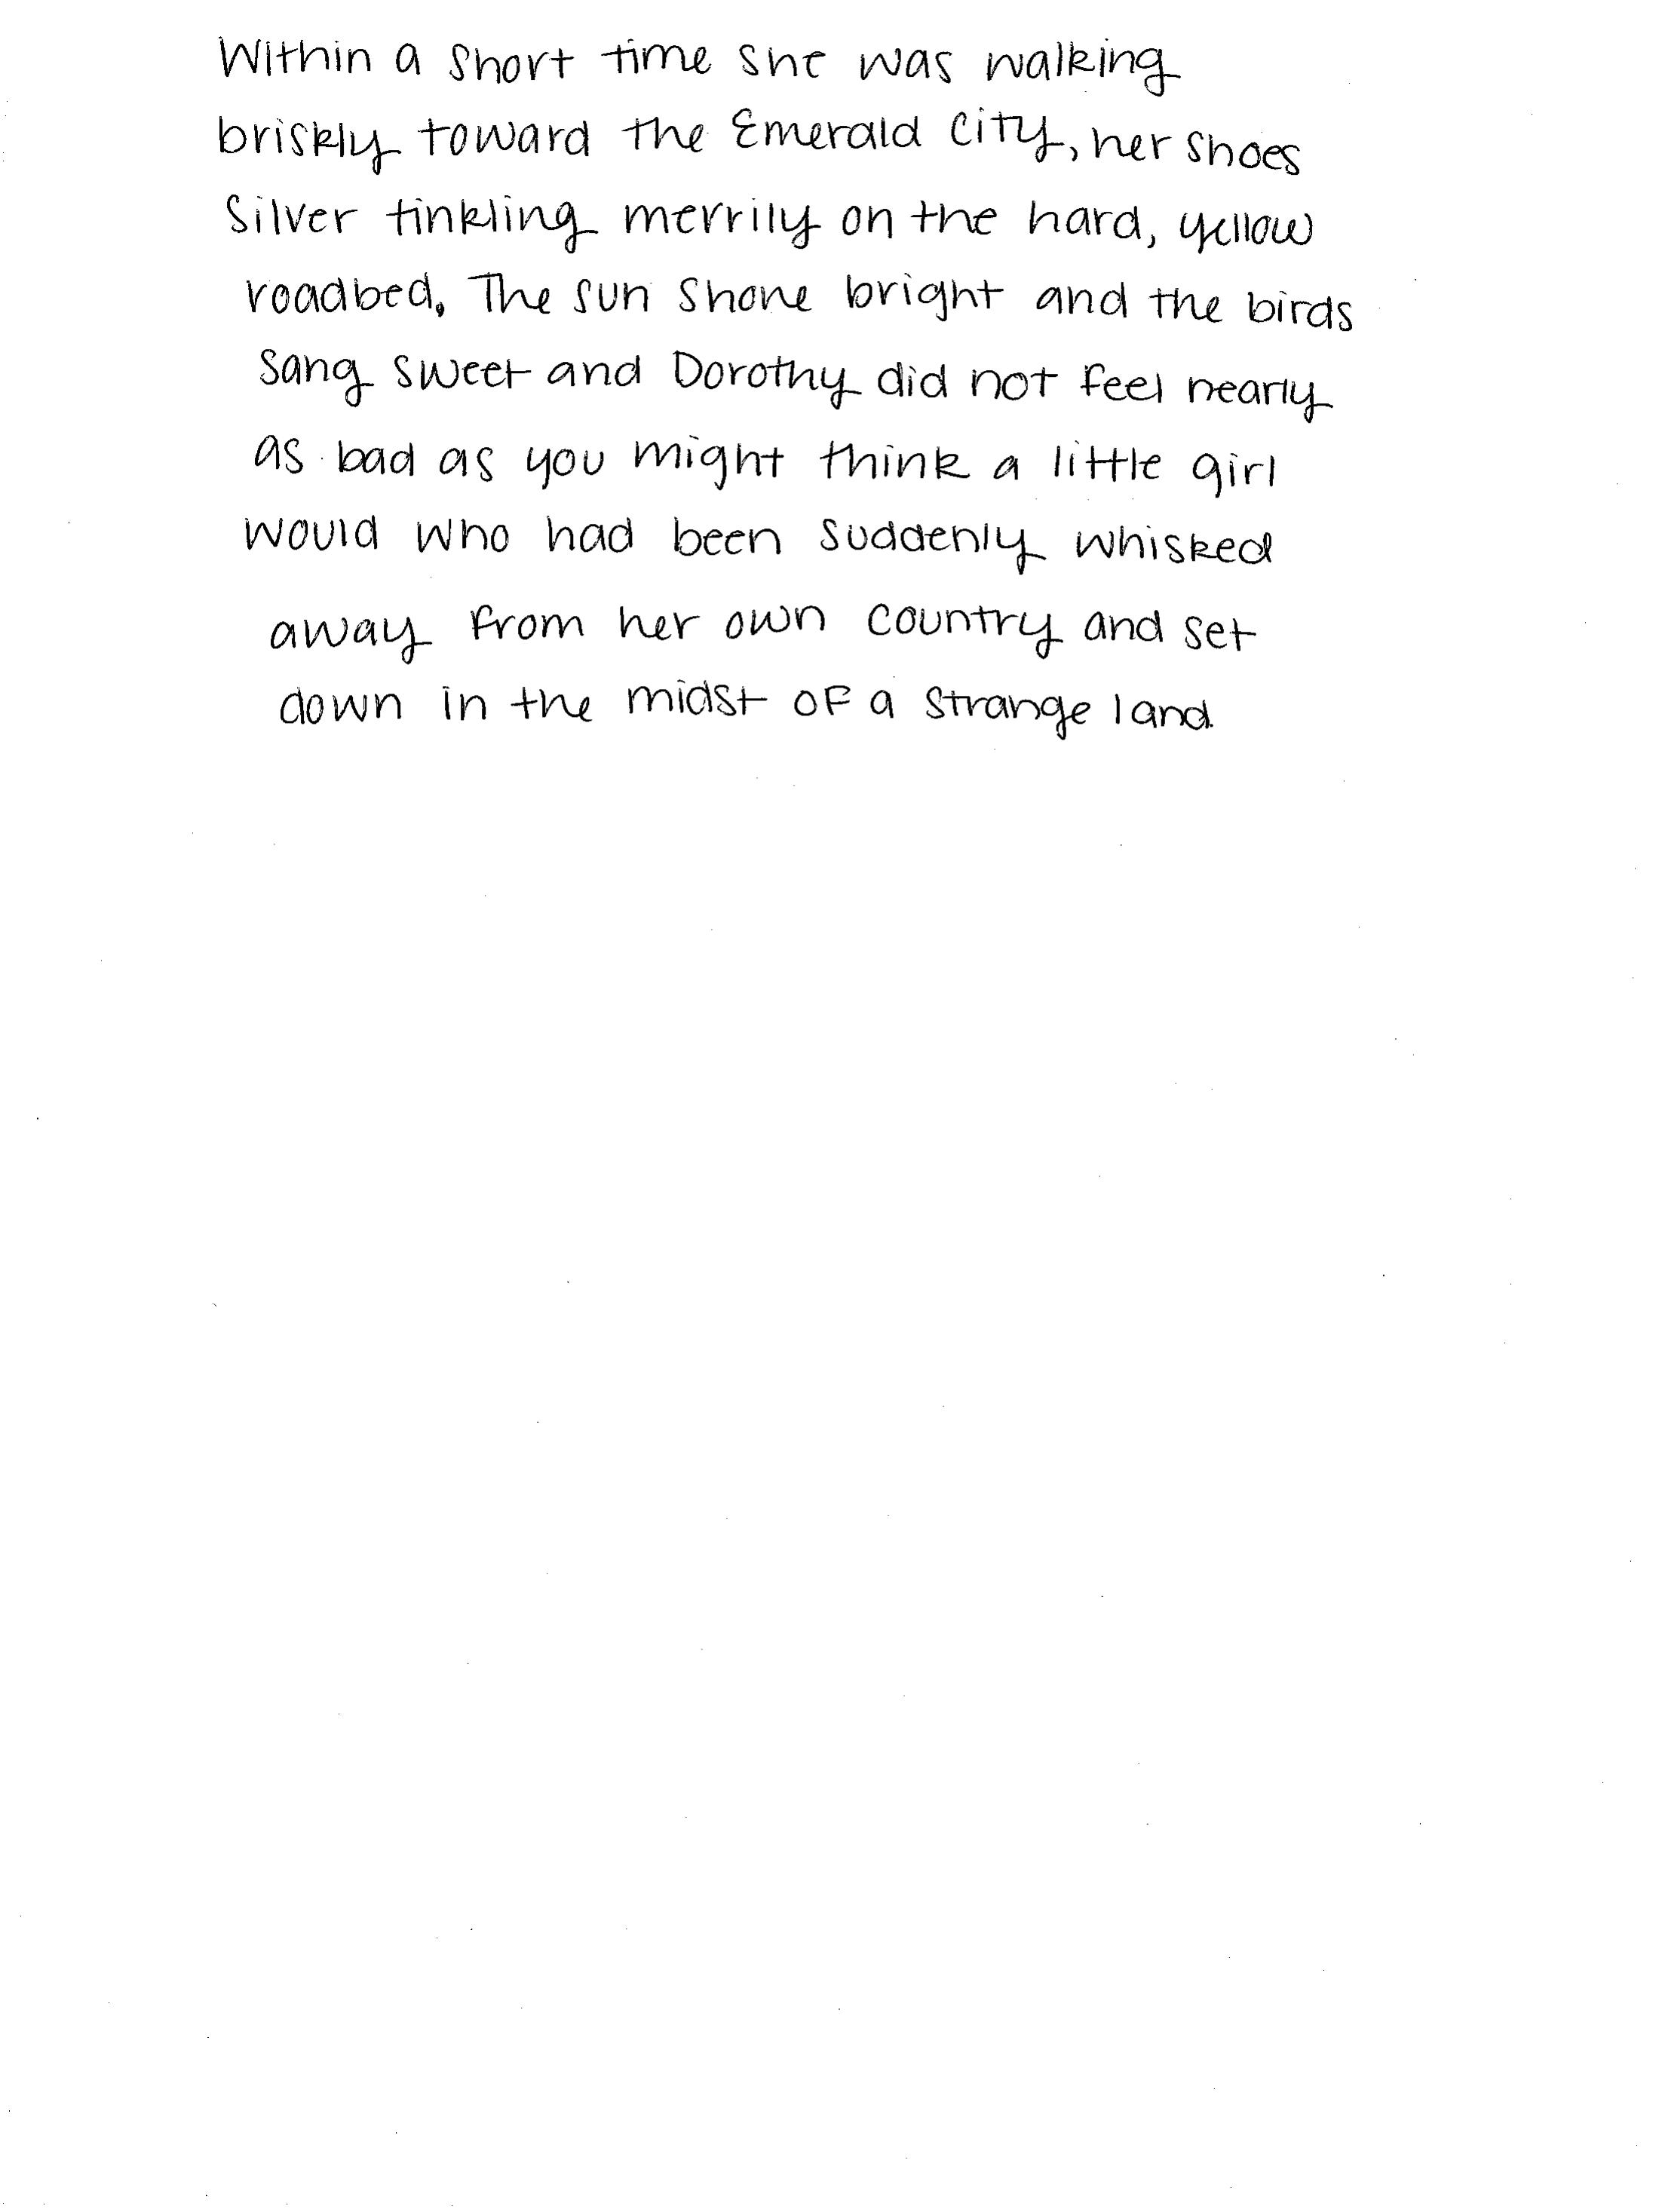 Within a short time she was walking
briskly toward the Emerald City, her shoes
Silver tinkling merrily on the hard, yellow
roadbed. The sun shone bright and the birds
sang sweet and Dorothy did not feel nearly
as bad as you might think a little girl
would who had been suddenly whisked
away from her own country and set
down in the midst of a strange land